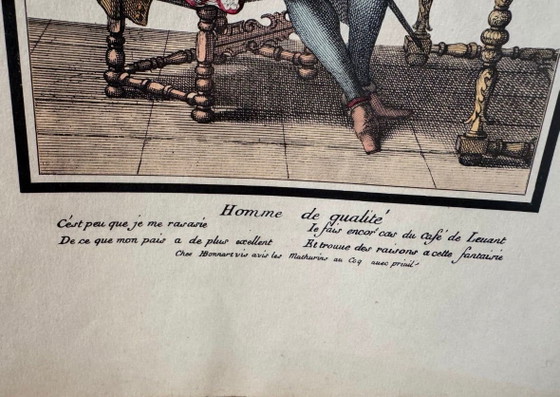 Homme de qualité
C'est peu que je me rasasie
De ce que mon pais a de plus excellent
Ie fais encor' cas du Café de Leuant
Et trouue des raisons a cette fantaisie
Chez HBonnart vis avis les Mathurins au Coq auec priuil